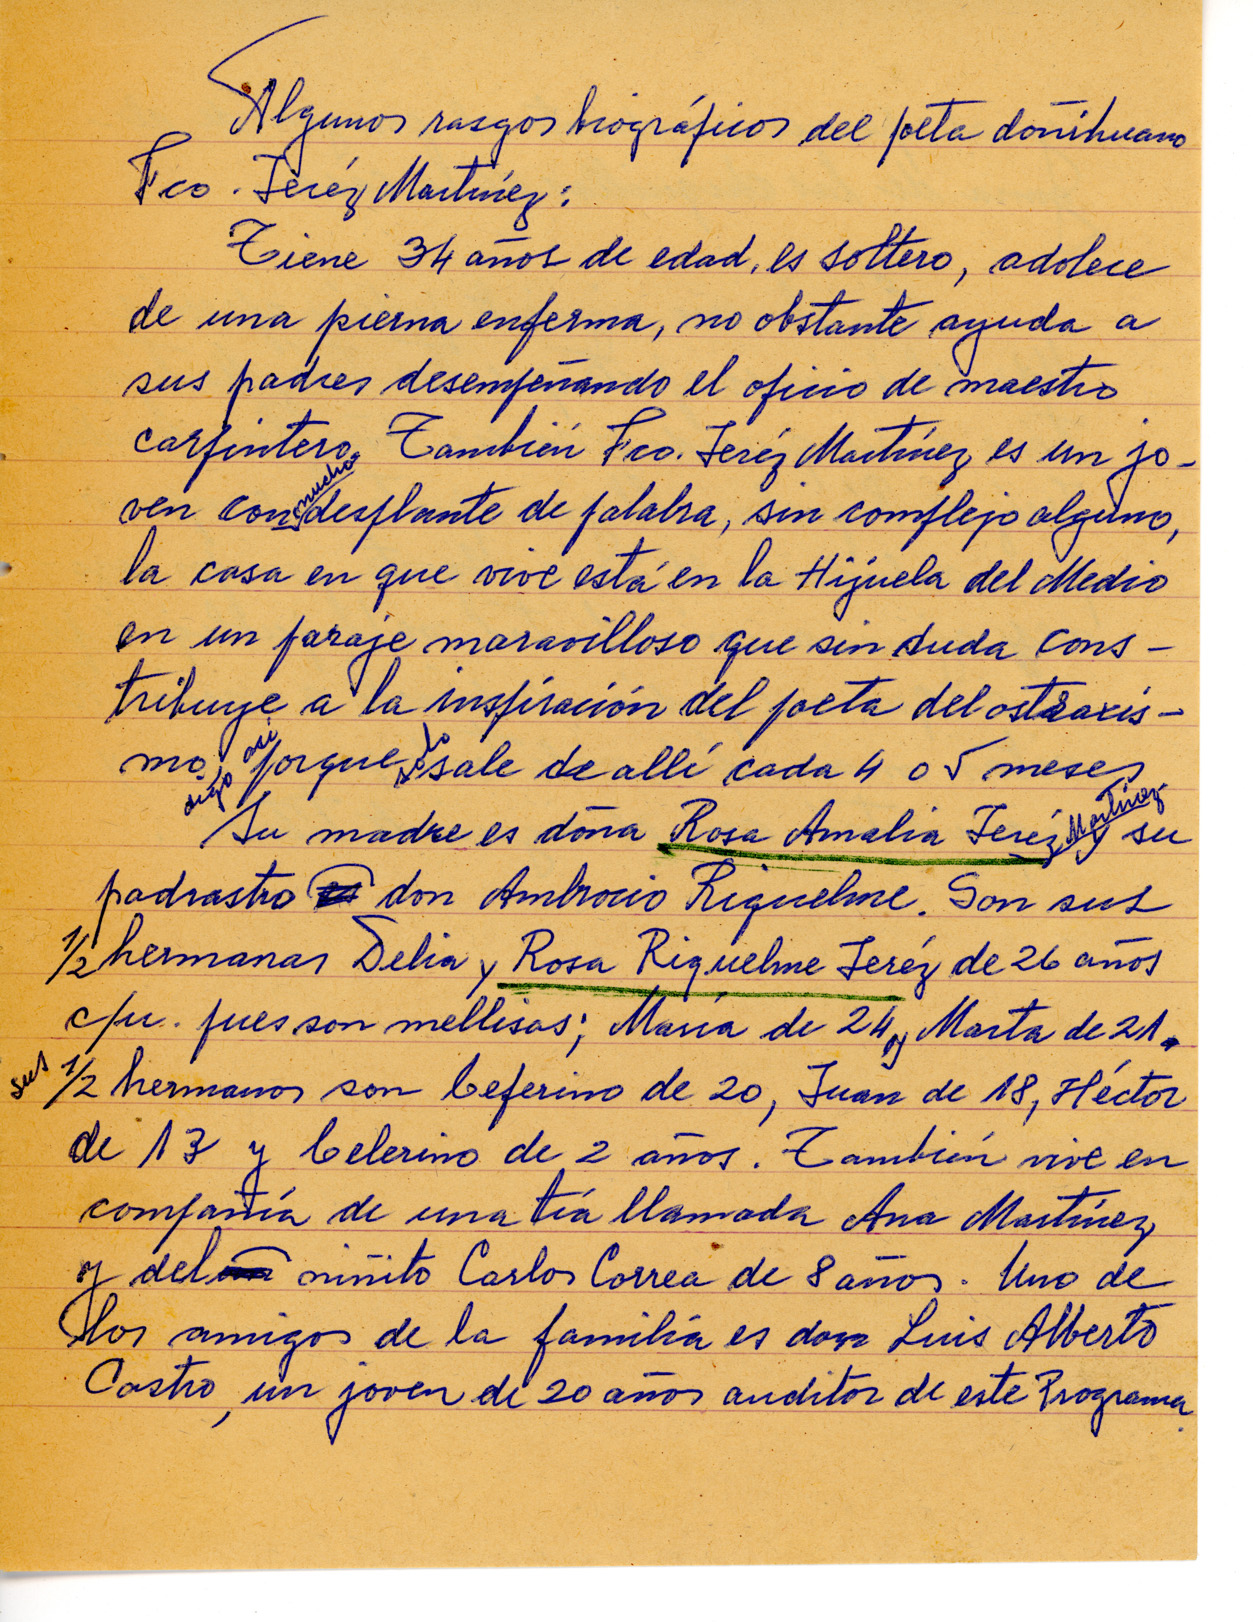 Algunos rasgos biográficos del poeta doñihuano
Fco. Jeréz Martínez:
Tiene 34 años de edad, es soltero, adolece
de una pierna enferma, no obstante ayuda a
sus padres desempeñando el oficio de maestro
carpintero. También Fco. Jeréz Martínez es un jo-
ven con mucho desplante de palabra, sin complejo alguno,
la casa en que vive está en la Hijuela del Medio
en un paraje maravilloso que sin duda cons-
tribuye a la inspiración del poeta del ostraxis-
mo, digo así porque solo sale de allí cada 4 o 5 meses
Su madre es doña Rosa Amalia Jeréz Martínez y su
padrastro don Ambrocio Riquelme. Son sus
1/2 hermanas Delia y Rosa Riquelme Jeréz de 26 años
c/u. pues son mellisas; María de 24 y Marta de 21.
sus 1/2 hermanos son Ceferino de 20, Juan de 18, Héctor
de 13 y Celerino de 2 años. También vive en
compañía de una tía llamada Ana Martínez
y del niñito Carlos Correa de 8 años. Uno de
los amigos de la familia es don Luis Alberto
Castro, un joven de 20 años auditor de este Programa.